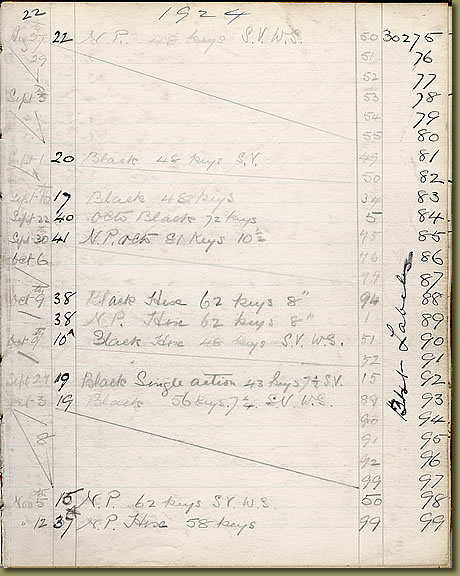 22 1924
Aug 27 22 N.P. 48 keys S.V. W.S. 50 30275
29 51 76
52 77
Sept 3 53 78
54 79
55 80
Sept 1 20 Black 48 keys S.V. 49 81
50 82
Sept 10 17 Black 48 keys 34 83
Sept 22 40 Octo Black 72 keys 5 84
Sept 30 41 N.P. Octo 81 keys 10½ 75 85
Oct 6 76 86
79 87
Oct 9 38 Black Hexe 62 keys 8" 94 88
38 N.P. Hexe 62 keys 8" 1 89
Oct 9 10A Black Hexe 48 keys S.V. W.S. 51 90
52 91
Sept 27 19 Black Single action 43 keys 7¼ S.V. 15 92
Oct 3 19 Black 56 keys 7¼ S.V. W.S. 89 93
90 94
91 95
8 92 96
99 97
Nov 5 15 N.P. 62 keys S.V. W.S. 50 98
" 12 37 N.P. Hexe 58 keys 99 99
Labels